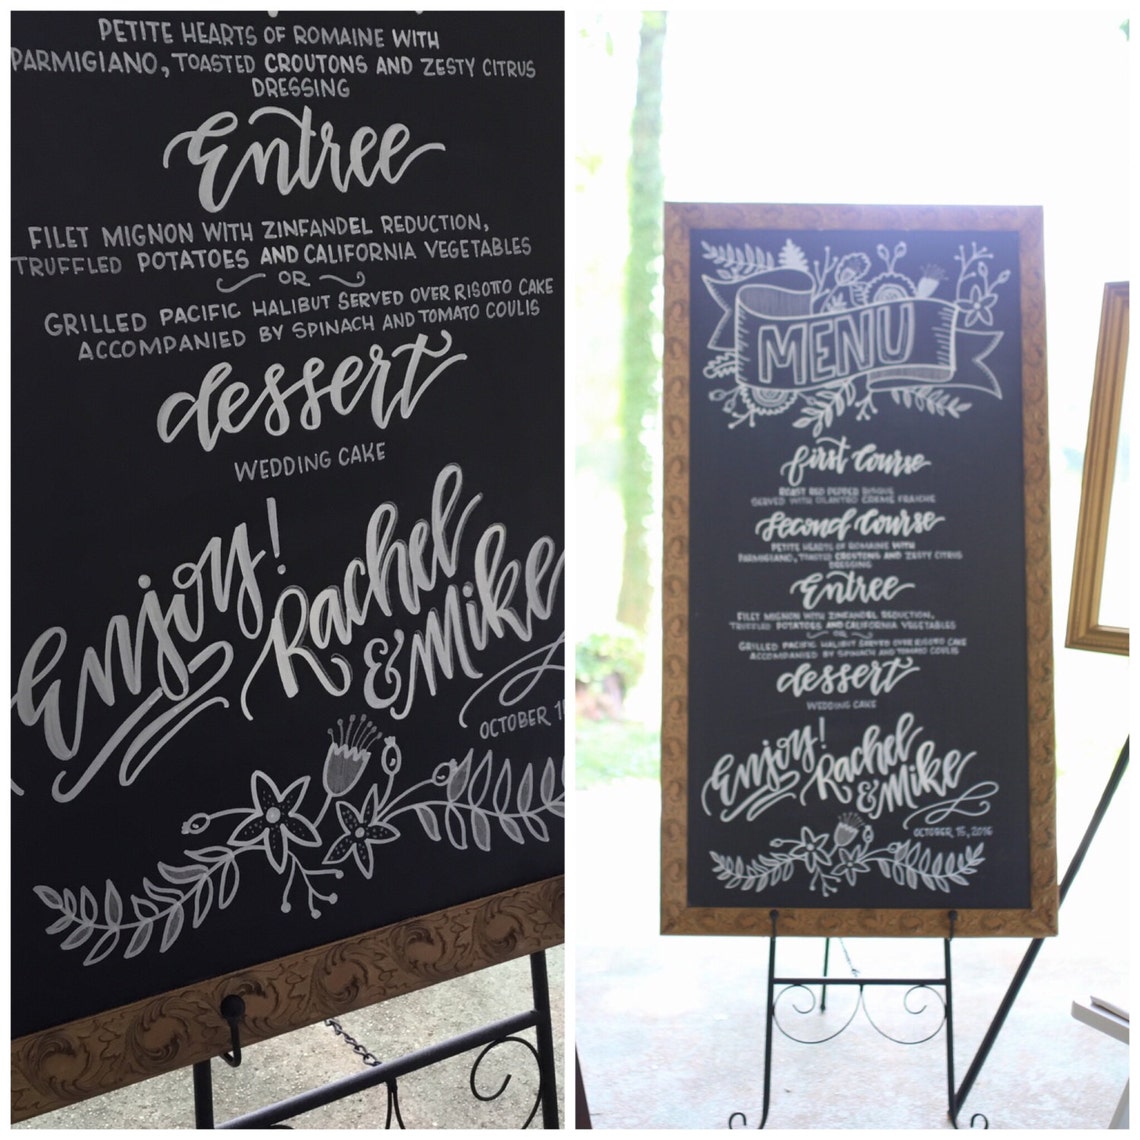 PETITE HEARTS OF ROMAINE WITH
PARMIGIANO, TOASTED CROUTONS AND ZESTY CITRUS
DRESSING
Entree
FILET MIGNON WITH ZINFANDEL REDUCTION,
TRUFFLED POTATOES AND CALIFORNIA VEGETABLES
OR
GRILLED PACIFIC HALIBUT SERVED OVER RISOTTO CAKE
ACCOMPANIED BY SPINACH AND TOMATO COULIS
dessert
WEDDING CAKE
Enjoy!
Rachel
& Mike
OCTOBER 1
MENU
first Course
ROAST RED PEPPER BISQUE
SERVED WITH CILANTRO CREME FRAICHE
Second Course
PETITE HEARTS OF ROMAINE WITH
PARMIGIANO, TOASTED CROUTONS AND ZESTY CITRUS
DRESSING
Entree
FILET MIGNON WITH ZINFANDEL REDUCTION,
TRUFFLED POTATOES AND CALIFORNIA VEGETABLES
OR
GRILLED PACIFIC HALIBUT SERVED OVER RISOTTO CAKE
ACCOMPANIED BY SPINACH AND TOMATO COULIS
dessert
WEDDING CAKE
Enjoy!
Rachel
& Mike
OCTOBER 15, 2016